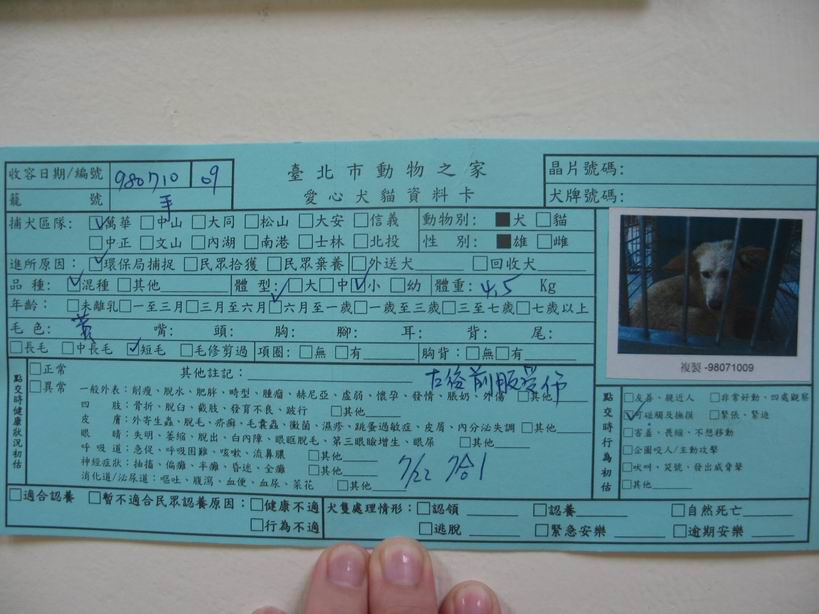 收容日期/編號 980710 09
臺北市動物之家
晶片號碼:
籠 號
愛心犬貓資料卡
犬牌號碼:
捕犬區隊: ☑萬華 □中山 □大同 □松山 □大安 □信義 動物別: ■犬 □貓
□中正 □文山 □內湖 □南港 □士林 □北投 性 別: ■雄 □雌
進所原因: ☑環保局捕捉 □民眾拾獲 □民眾棄養 □外送犬 □回收犬
品 種: ☑混種 □其他 體 型: □大 □中 ☑小 □幼 體重: 4.5 Kg
年齡: □未離乳 □一至三月 □三月至六月 ☑六月至一歲 □一歲至三歲 □三至七歲 □七歲以上
毛 色: 黃 嘴: 頭: 胸: 腳: 耳: 背: 尾:
□長毛 □中長毛 ☑短毛 □毛修剪過 項圈: □無 □有 胸背: □無 □有
複製-98071009
點交時健康狀況初估
□正常 其他註記:
□異常
一般外表: 削瘦、脫水、肥胖、畸型、腫瘤、赫尼亞、虛弱、懷孕、發情、脹奶、外傷 □其他
四 肢: 骨折、脫臼、截肢、發育不良、跛行 □其他
皮 膚: 外寄生蟲、脫毛、疥癬、毛囊蟲、黴菌、濕疹、跳蚤過敏症、皮屑、內分泌失調 □其他
眼 睛: 失明、萎縮、脫出、白內障、眼眶脫毛、第三眼瞼增生、眼屎 □其他
呼 吸 道: 急促、呼吸困難、咳嗽、流鼻膿 □其他
神經症狀: 抽搐、偏癱、半癱、昏迷、全癱 □其他
消化道/泌尿道: 嘔吐、腹瀉、血便、血尿、菜花 □其他
7/22
點交時行為初估
□友善、親近人 □非常好動、四處觀察
☑可碰觸及撫摸 □緊張、緊迫
□害羞、畏縮、不想移動
□企圖咬人/主動攻擊
□吠叫、哭號、發出威脅聲
□其他
□適合認養 □暫不適合民眾認養原因: □健康不適
□行為不適
犬隻處理情形: □認領 □認養 □自然死亡
□逃脫 □緊急安樂 □逾期安樂